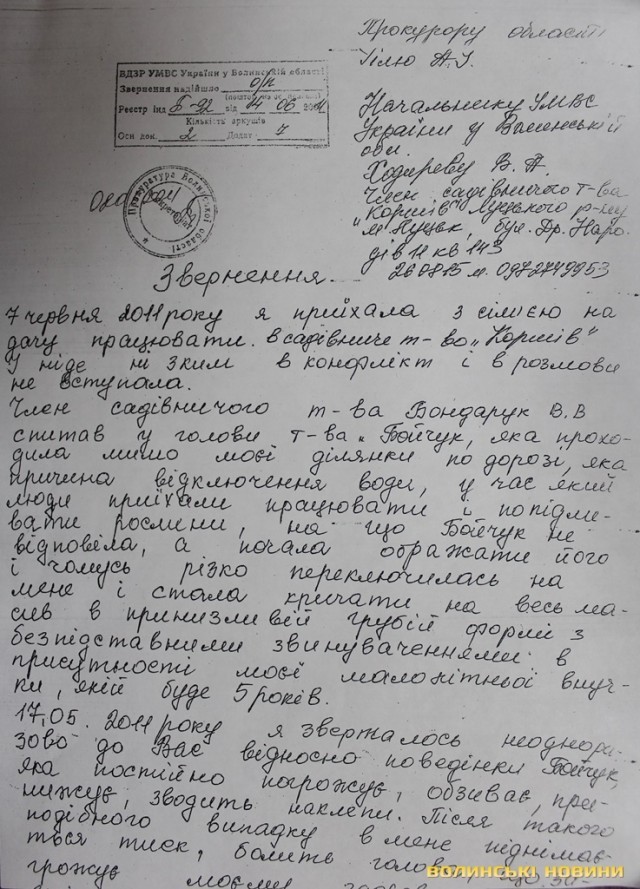 Прокурору області
Гілю А.І.
ВДЗР УМВС України у Волинській області
Звернення надійшло о/п
Реєстр інд Б-92 від 14 06 2011
Кількість аркушів
Осн. док. 2 Додат.
Прокуратура Волинської області
Начальнику УМВС
України у Волинській
обл.
Ходиреву В. П.
член садівничого т-ва
"Коршів" Луцького р-ну
м Луцьк, бул. Др. Наро
дів 11 кв 143
260815 м. 0972749953
Звернення
7 червня 2011 року я приїхала з сімєю на
дачу працювати. в садівниче т-во „Коршів"
У ніде ні з ким в конфлікт і в розмови
не вступала.
Член садівничого т-ва Бондарук В.В
спитав у голови т-ва „Бойчук, яка прохо-
дила мимо моєї ділянки по дорозі, яка
причина відключення води, у час який
люди приїхали працювати і попідли-
вати рослини, на що Бойчук не
відповіла, а почала ображати його
і чомусь різко переключилась на
мене і стала кричати на весь ма-
сив в принизливій грубій формі з
безпідставними звинуваченнями в
присутності моєї малолітньої внуч-
ки, якій буде 5 років.
17.05. 2011 року я звертялось неоднора-
зово до Вас відносно поведінки Бойчук,
яка постійно погрожує, обзиває, при-
нижує, зводить наклепи. Після такого
подібного випадку в мене піднімає-
ться тиск, болить голова,
грожує моєму
ВОЛИНСЬКІ НОВИНИ